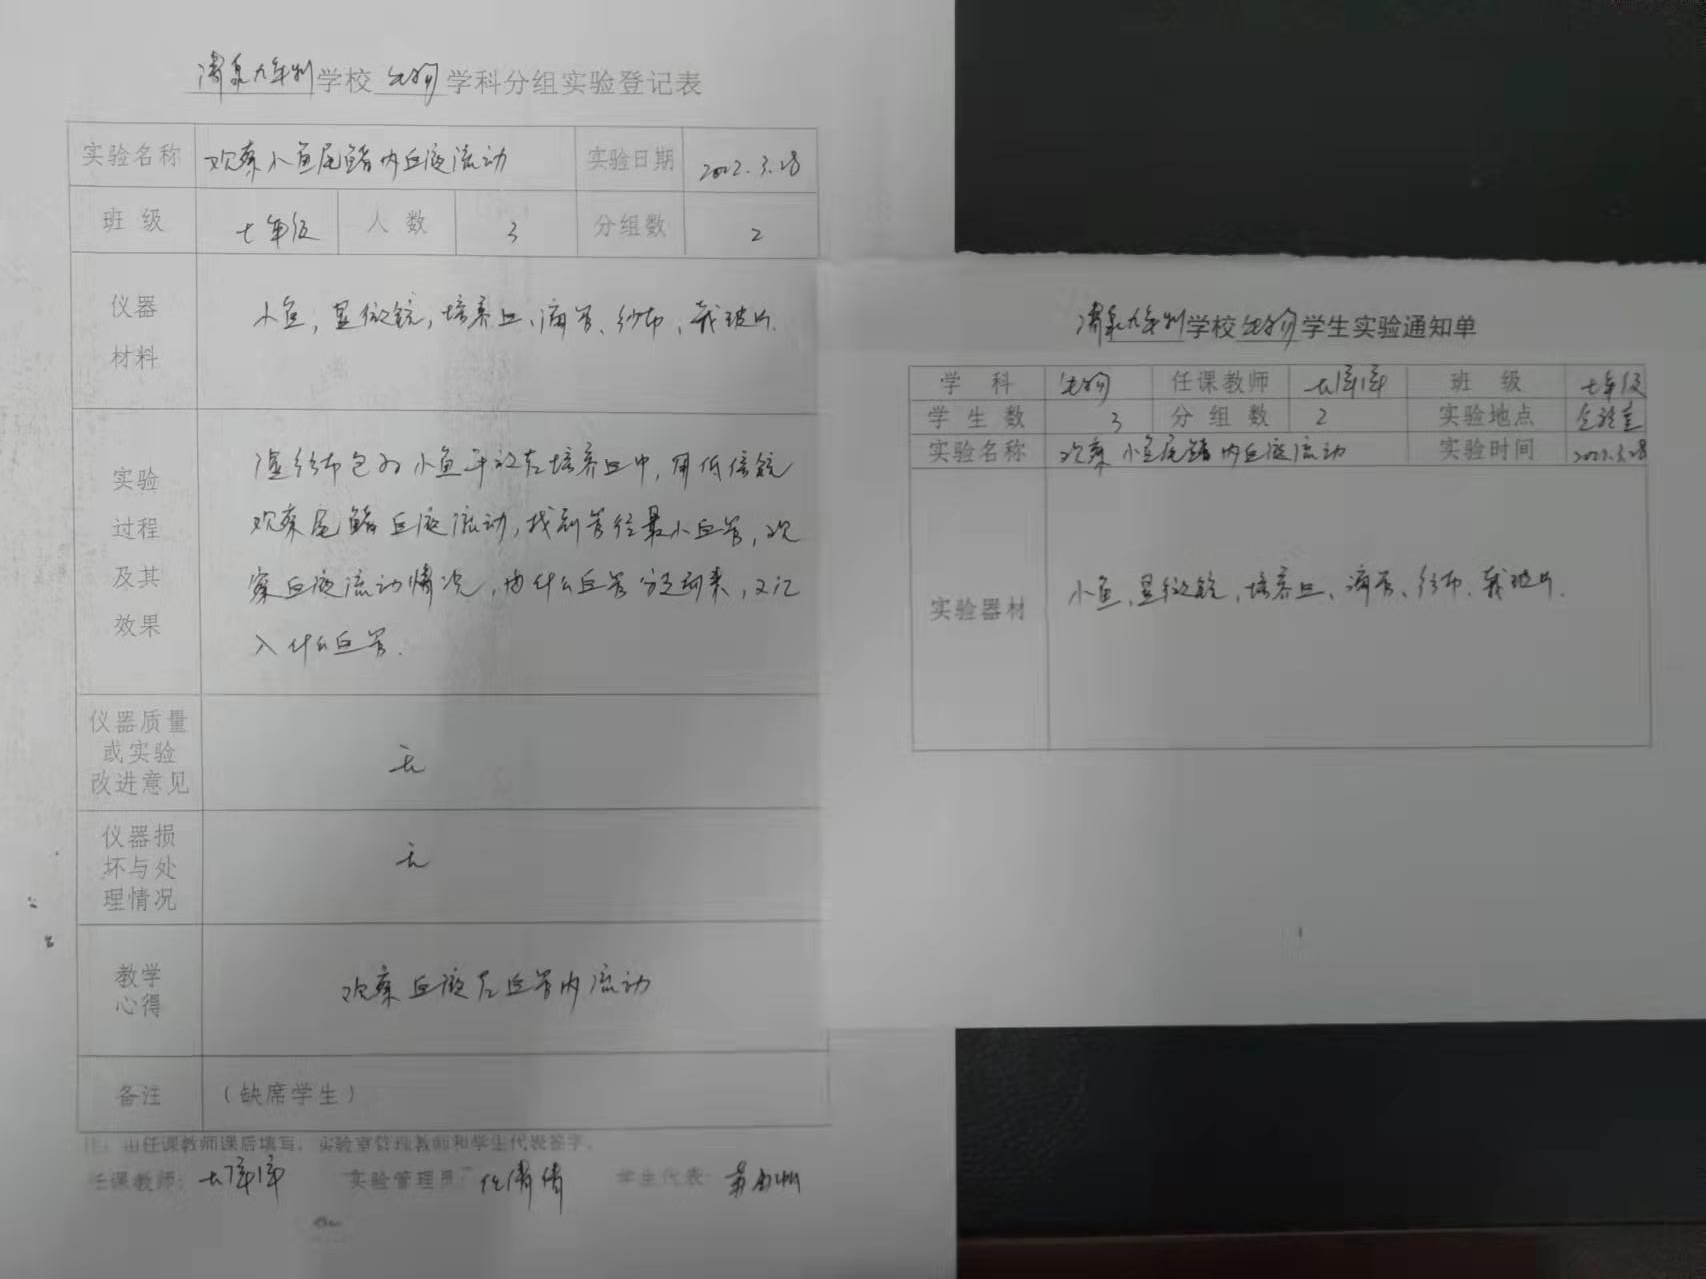 清泉九年制学校生物学科分组实验登记表
实验名称 观察小鱼尾鳍内血液流动 实验日期 2022.3.28
班 级 七年级 人 数 3 分组数 2
仪器
材料
小鱼，显微镜，培养皿、滴管、纱布、载玻片.
实验
过程
及其
效果
湿纱布包好小鱼平放在培养皿中，用低倍镜
观察尾鳍血液流动，找到管径最小血管，观
察血液流动情况，由什么血管分支而来，又汇
入什么血管.
仪器质量
或实验
改进意见
无
仪器损
坏与处
理情况
无
教学
心得
观察血液在血管内流动
备注 （缺席学生）
注：由任课教师课后填写，实验室管理教师和学生代表签字。
任课教师： 实验管理员： 学生代表：
清泉九年制学校生物学生实验通知单
学 科 生物 任课教师 班 级 七年级
学 生 数 3 分 组 数 2 实验地点 实验室
实验名称 观察小鱼尾鳍内血液流动 实验时间 2022.3.28
实验器材
小鱼，显微镜，培养皿、滴管、纱布、载玻片.